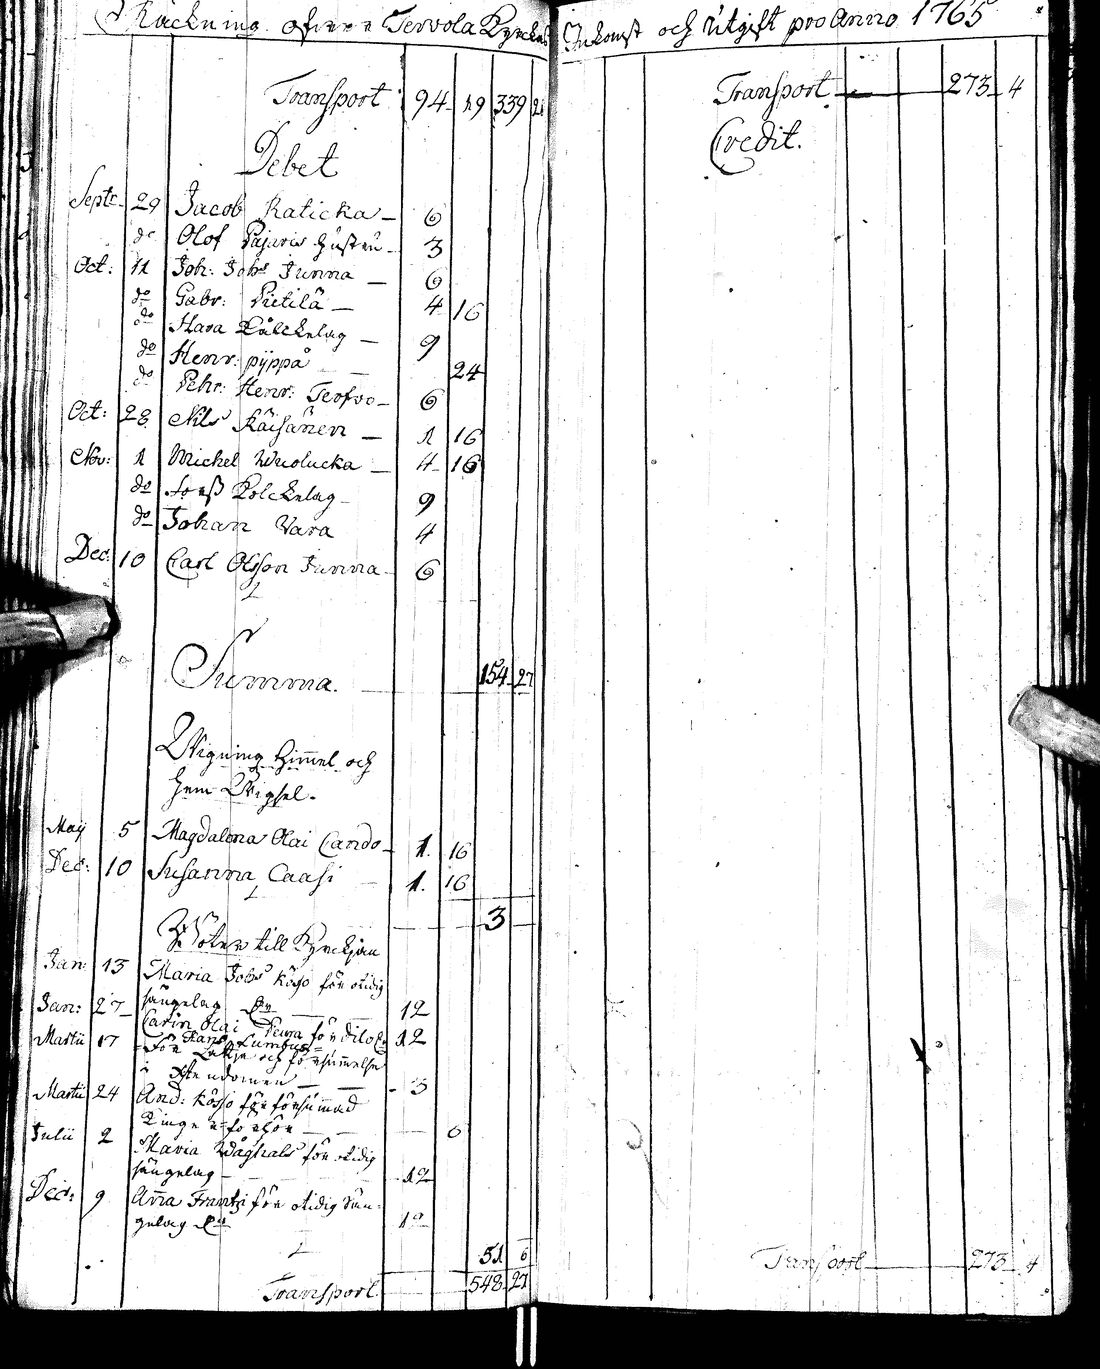 Räckning öfver Tervola Kyrckas Inkomst och Utgift pro Anno 1765
Transport 94 19 339 21
Debet
Septr. 29 Jacob Raticka 6
do Olof Pajaris hustru 3
Oct: 11 Joh: Johs Junna 6
do Gabr: Pietilä 4 16
do Hara Kålckelag 9
do Henr: pyppå 24
do Pehr: Henr: Terfvo 6
Oct: 28 Nils Räisänen 1 16
Nov: 1 Michel Wuolucka 4 16
do Kolckelag 9
do Johan Vara 4
Dec: 10 Carl Olsson Junna 6
Summa. 154 27
Wigning himmel och
hem Wigsel.
Maij 5 Magdalena Olai Cando 1. 16
Dec: 10 Susanna Caasi 1. 16
3
Böter till Kyrckjan
Jan: 13 Maria Johs Kåsso för otidig
sängelag 12
Jan: 27 Carin Olai Peura för dito 12
Martii 17 för och försummelse
i 3
Martii 24 And: Kåsso för försummad
6
Julii 2 Maria Wåghals för otidig
sängelag 12
Dec: 9 Anna Frantzi för otidig sän-
gelag 12
51 6
Transport 548 27
Transport 273 4
Credit.
Transport 273 4